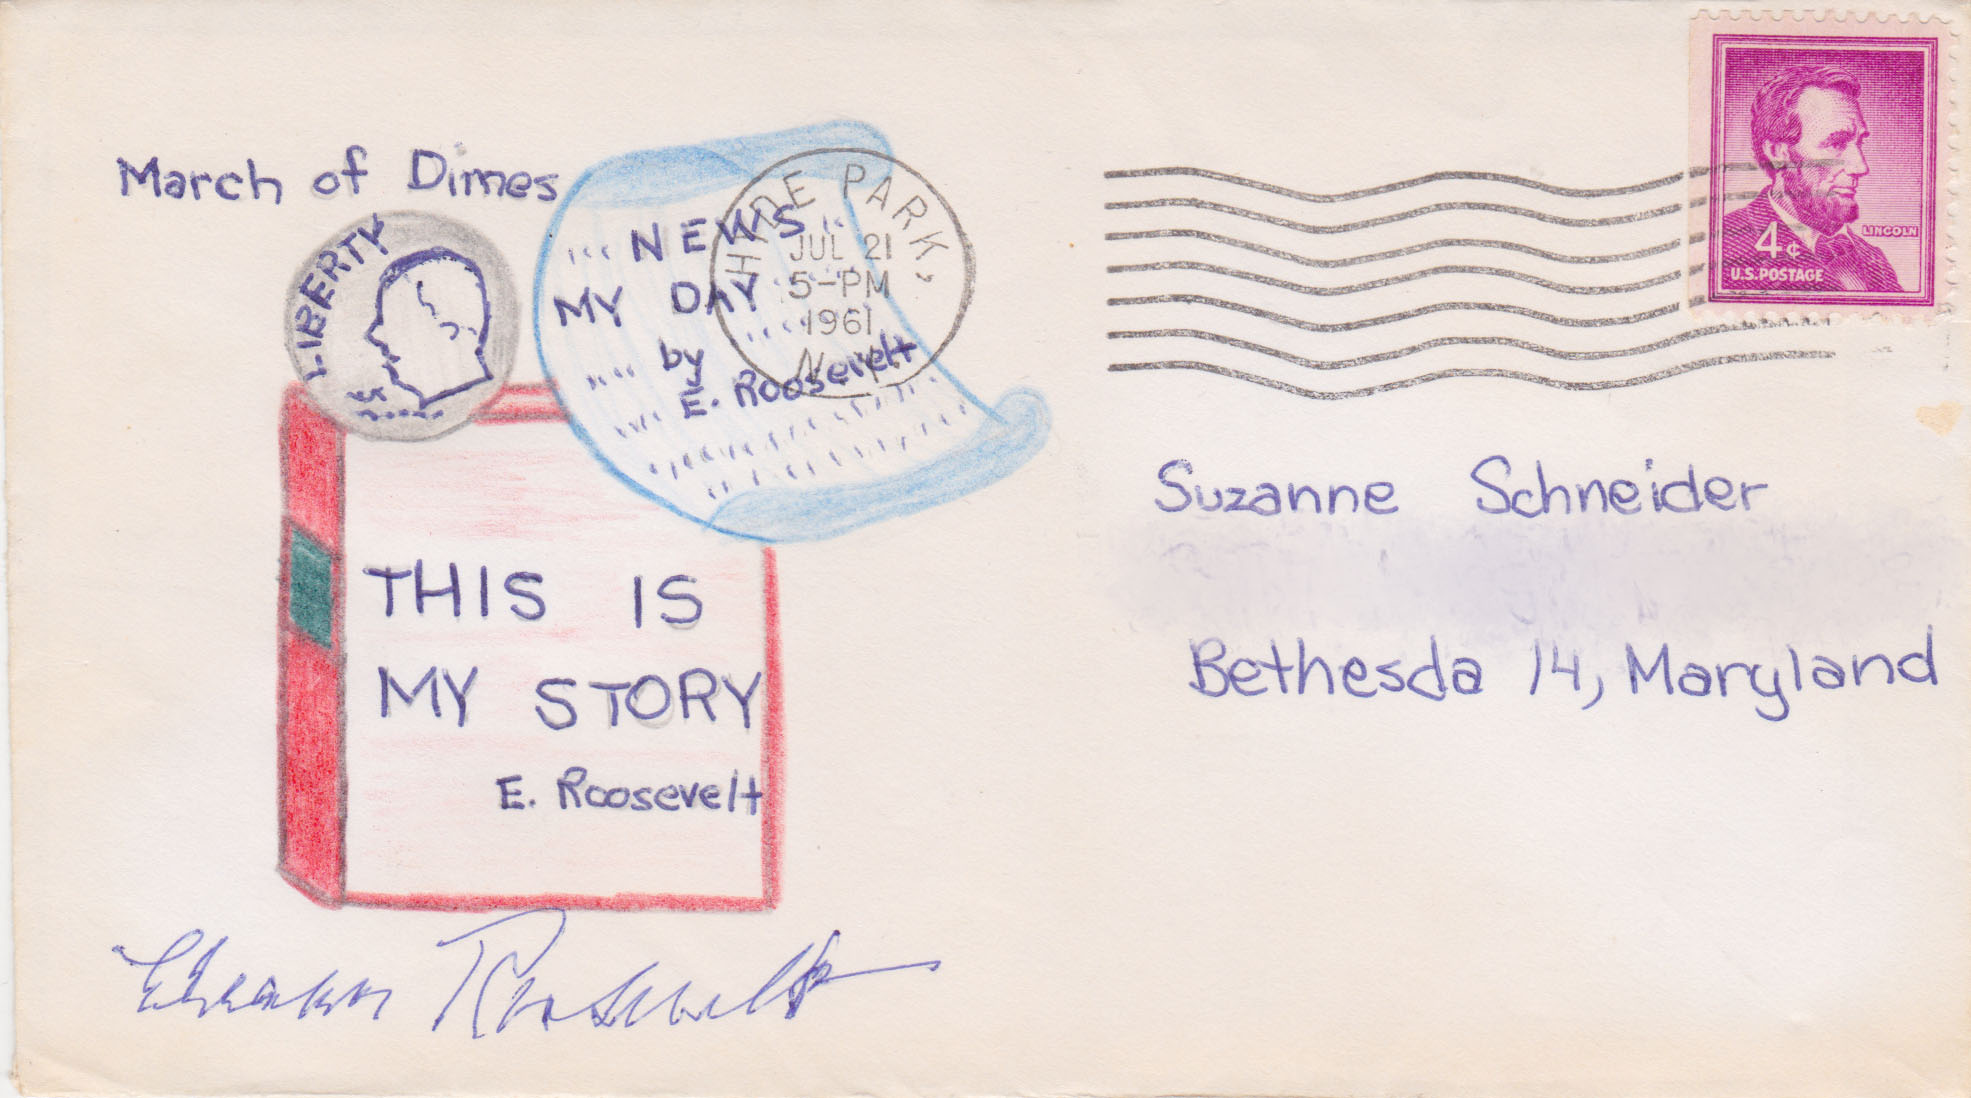 March of Dimes
LIBERTY
NEWS
MY DAY
by
E. Roosevelt
HYDE PARK,
JUL 21
5-PM
1961
N.Y.
4¢
LINCOLN
U.S. POSTAGE
Suzanne Schneider
Bethesda 14, Maryland
THIS IS
MY STORY
E. Roosevelt
Eleanor Roosevelt